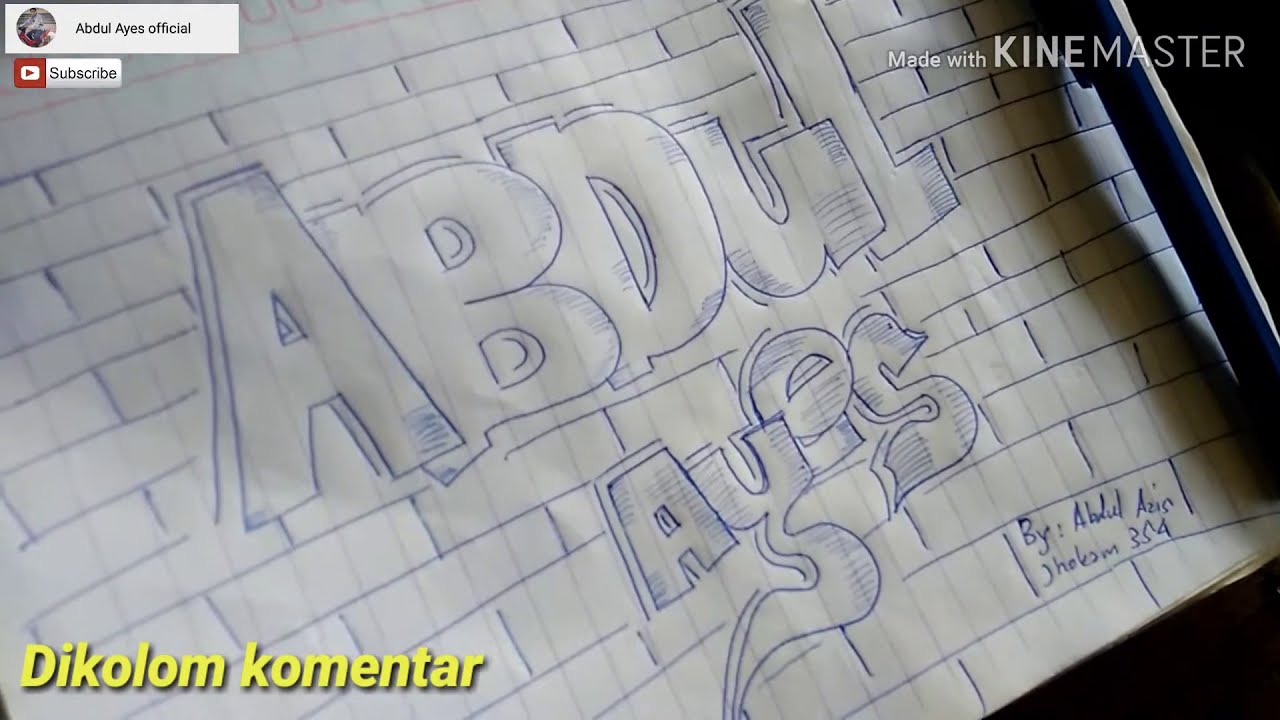 Abdul Ayes official
Subscribe
Made with KINEMASTER
ABDUL
Ayes
By: Abdul Azis
Jhokam 354
Dikolom komentar